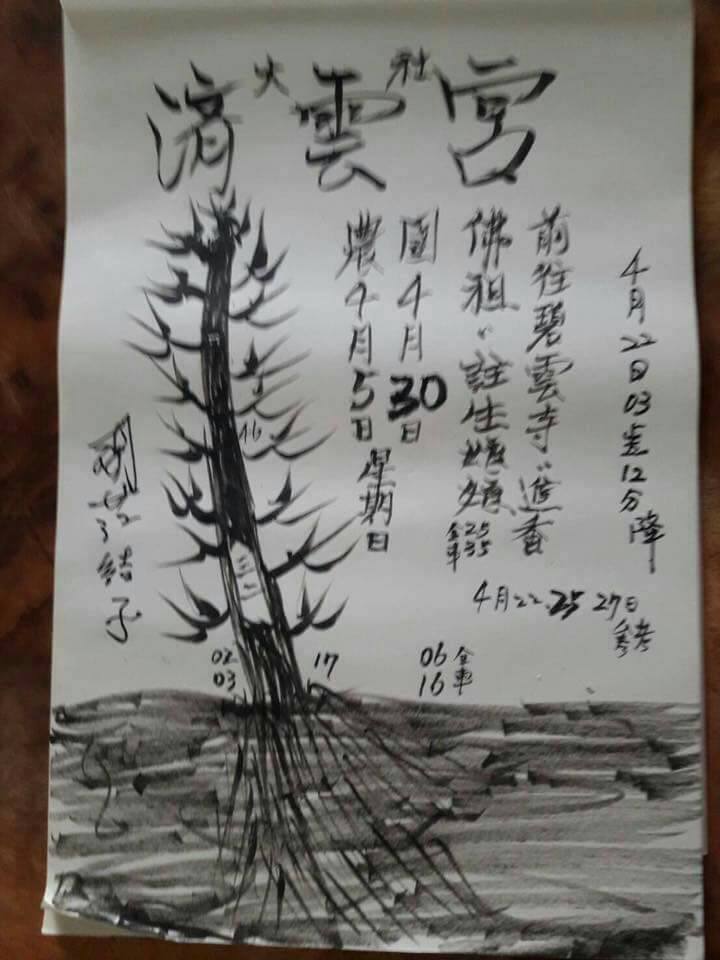 濟雲宮
火社
4月22日03点12分降
前往碧雲寺〃進香
佛祖〃註生娘娘
全車 25 35
國4月30日
農4月5日
星期日
4月22.25 27日
參考
46
三
02
03
17
06
16
全車
結子